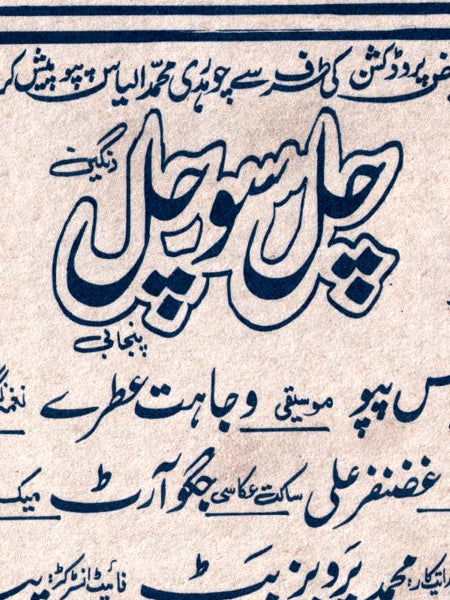 پروڈکشن کی طرف سے چوہدری محمد الیاس پپو پیش
رنگین
چل سو چل
پنجابی
پپو موسیقی وجاہت عطرے
غضنفر علی ساکت عکاسی جگو آرٹ میک
محمد پرویز بٹ فائیٹ انسٹرکٹر